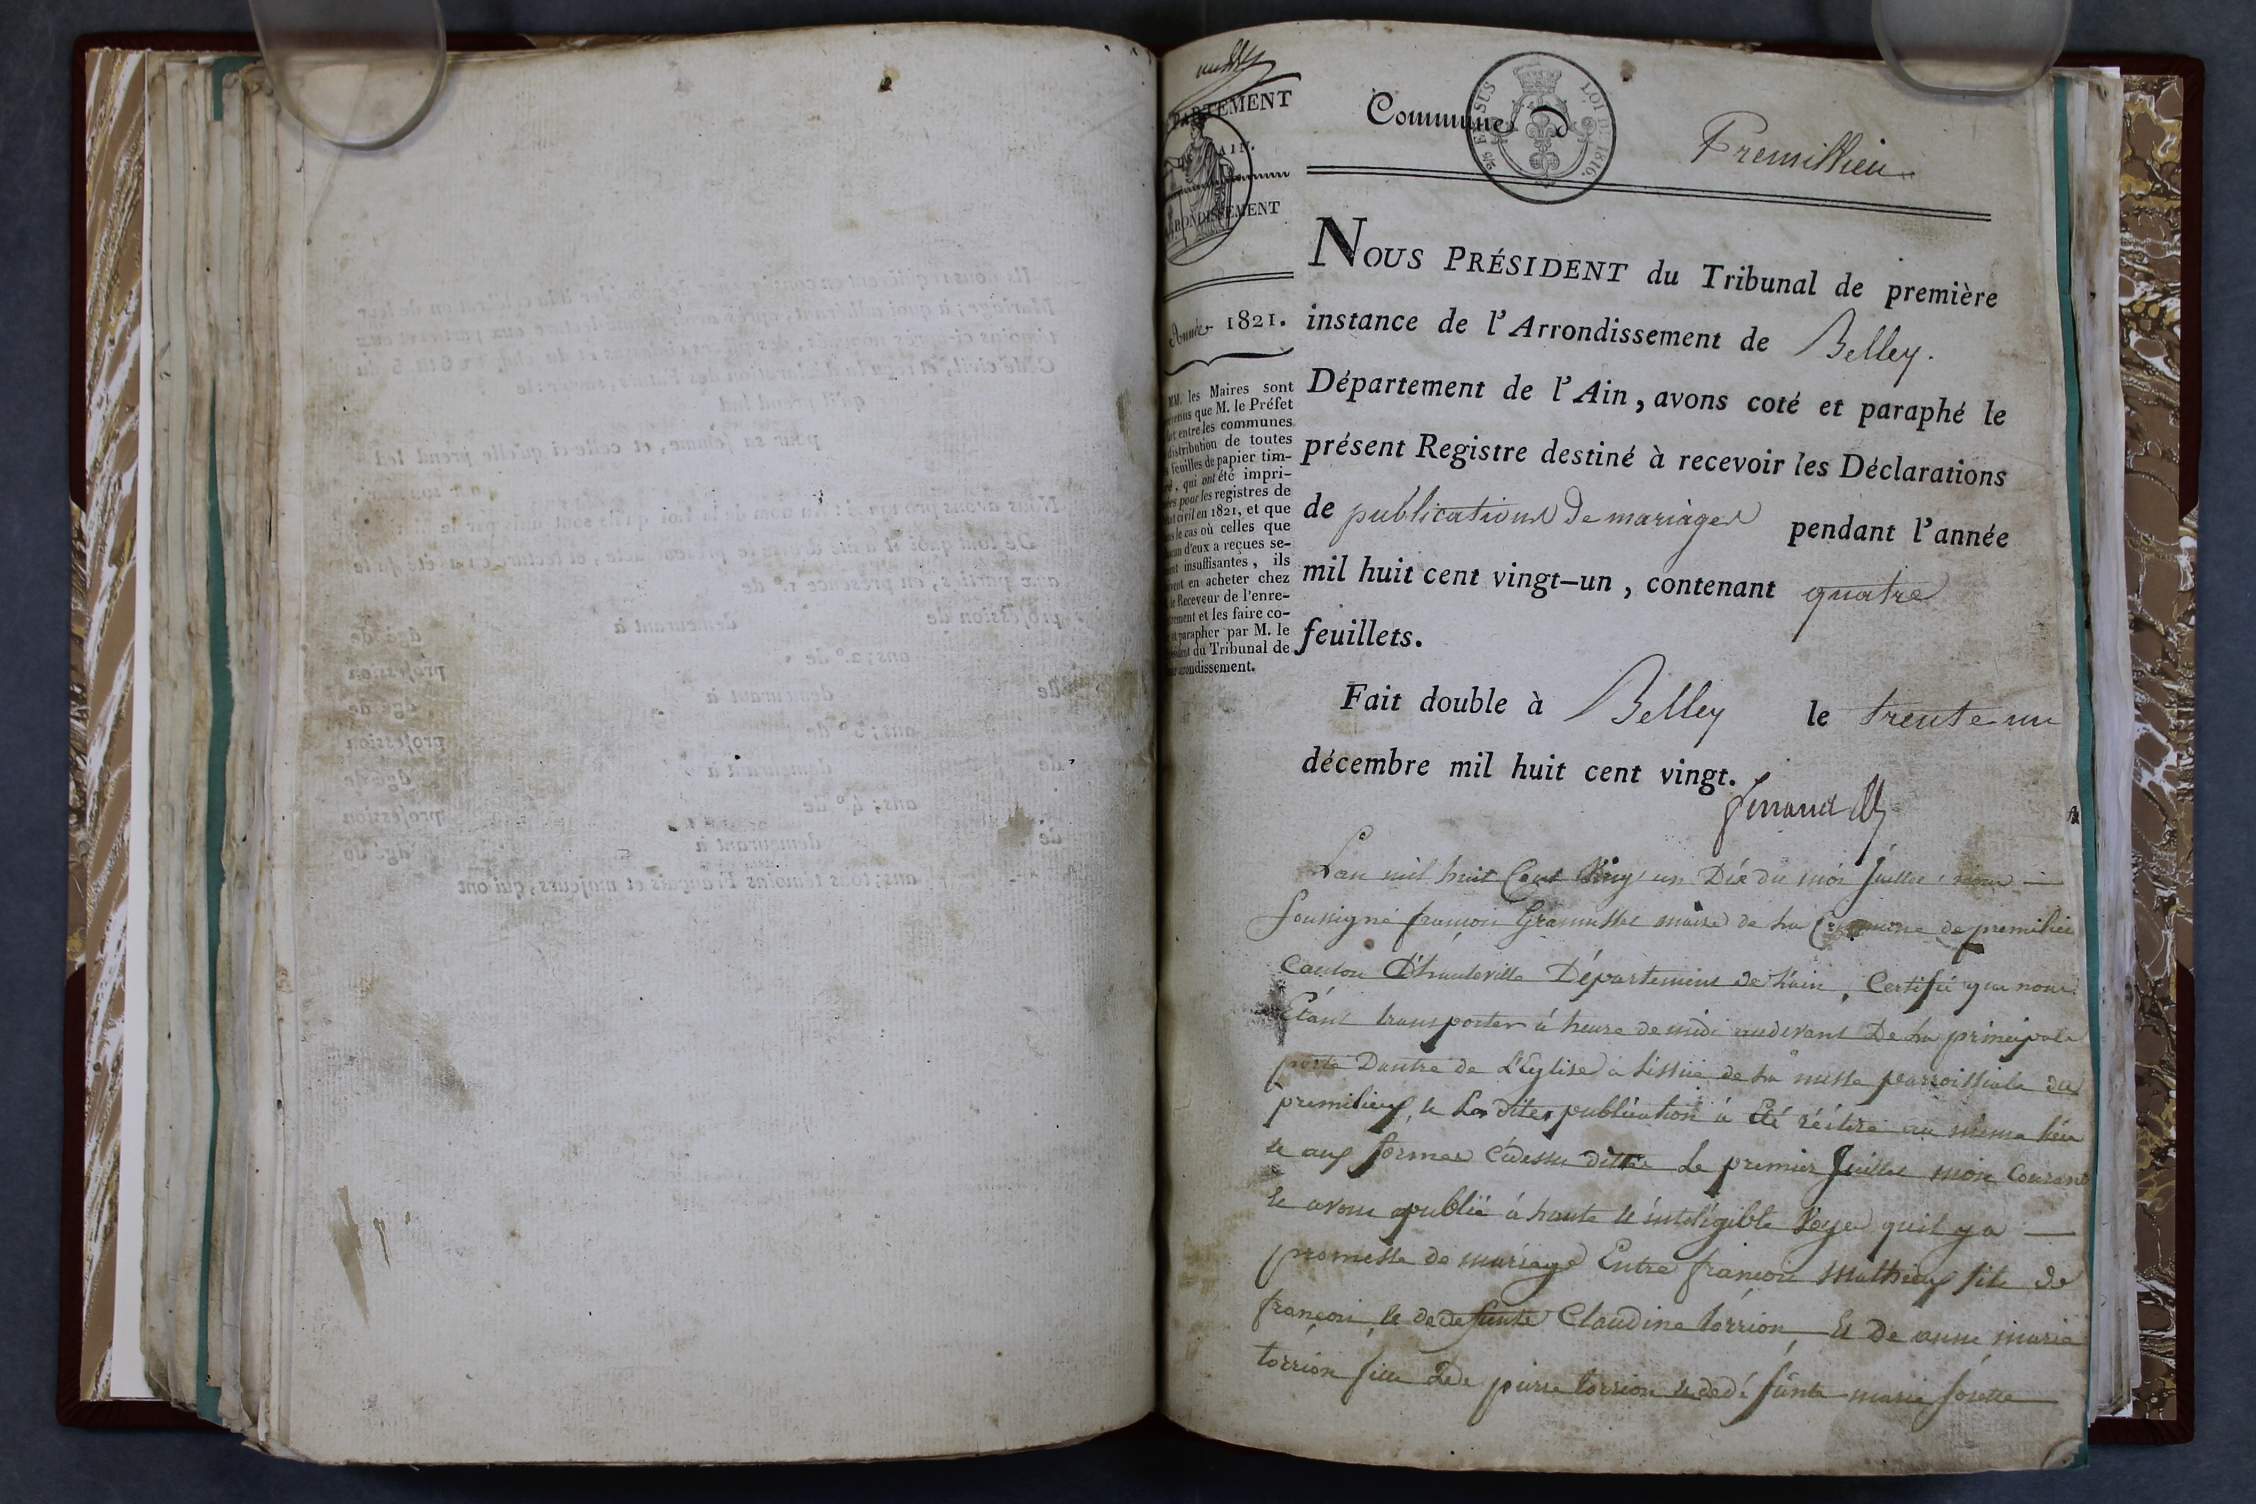 DÉPARTEMENT
AIN.
ARRONDISSEMENT
Année 1821.
MM. les Maires sont
prévenus que M. le Préfet
entre les communes
distribution de toutes
feuilles de papier tim-
bré, qui ont été impri-
mées pour les registres de
l'état civil en 1821, et que
dans le cas où celles que
chacun d'eux a reçues se-
raient insuffisantes, ils
doivent en acheter chez
le Receveur de l'enre-
gistrement et les faire co-
ter et parapher par M. le
Président du Tribunal de
leur arrondissement.
Commune d Premillieu
EN SUS LOI DE 1816.
NOUS PRÉSIDENT du Tribunal de première
instance de l'Arrondissement de Belley.
Département de l'Ain, avons coté et paraphé le
présent Registre destiné à recevoir les Déclarations
de publications de mariages pendant l'année
mil huit cent vingt-un, contenant quatre
feuillets.
Fait double à Belley le trente un
décembre mil huit cent vingt.
L'an mil huit Cent Vingt un Dix du mois Juillet nous
soussigné françois maire de La Commune de premilieu
Canton D'hauteville Département de L'ain, Certifié que nous
Etant transporter á heure de midi audevant De La principale
porte Dantré de L'Eglise a Lissüe de La messe parroissiale de
premilieu, et La dites publication á Eté réitéré au même lieu
et aux formes Cidessu ditte Le premier Juillet mois Courant
Et avons publié á haute et intelégible Voye quil y a
promesse de mariage Entre françois Mathieux fils de
françois et de defunte Claudine torrion Et De anne marie
torrion fille De pierre torrion et dedéfunte marie Josette